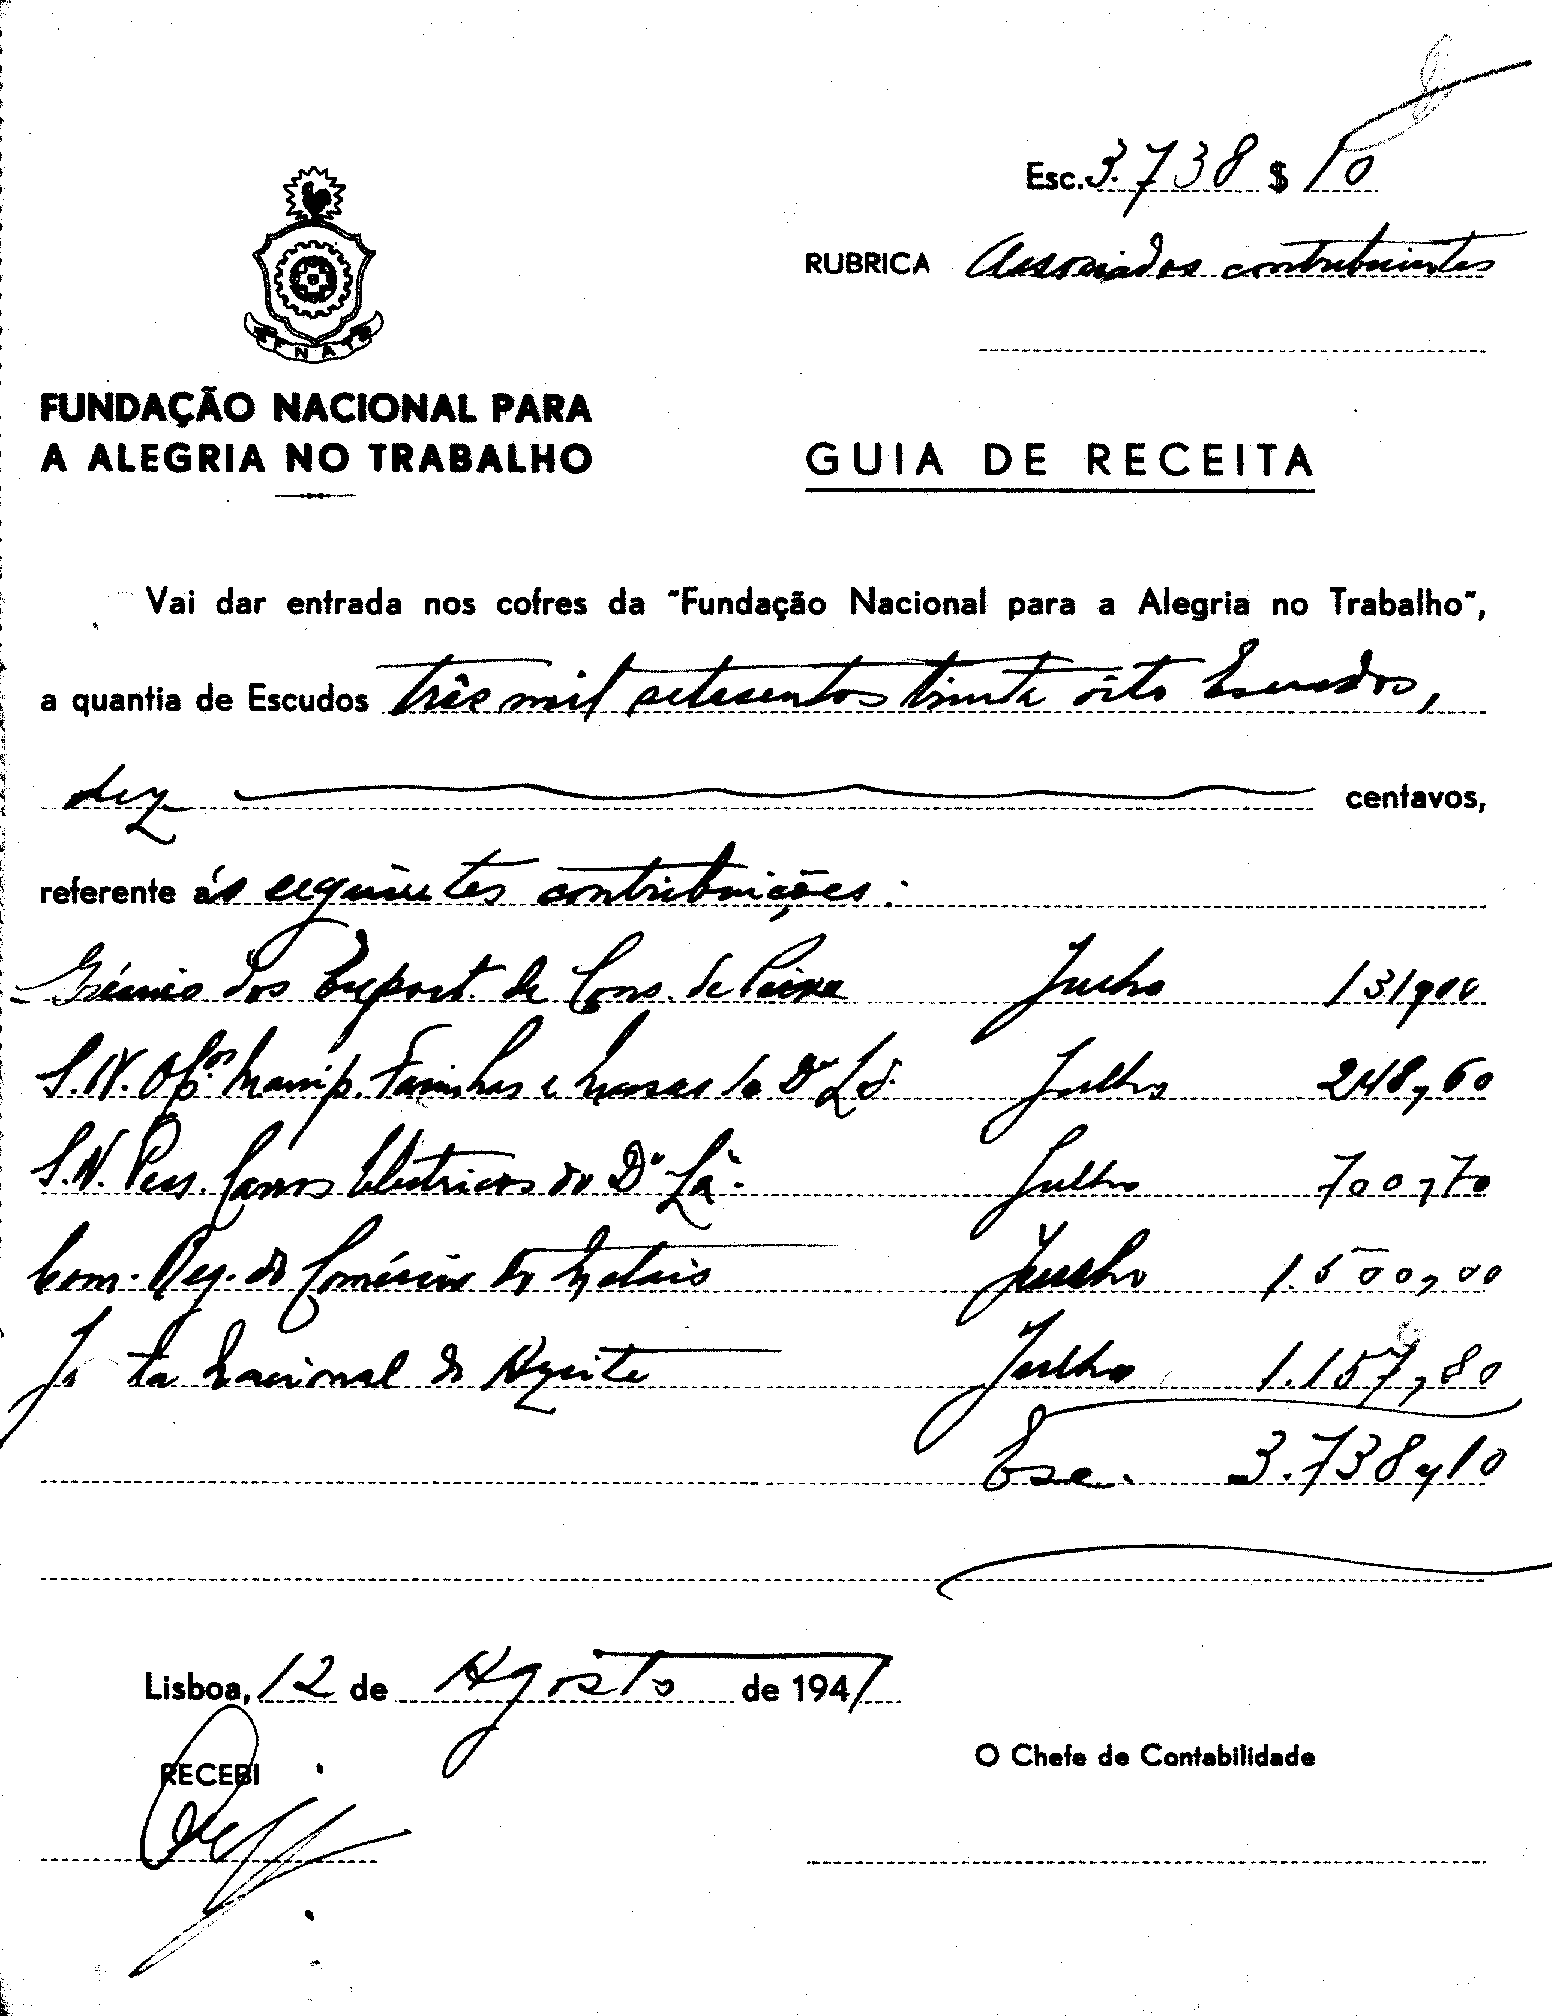 Esc. 3.738 $ 10
RUBRICA Associados contribuintes
FNAT
FUNDAÇÃO NACIONAL PARA
A ALEGRIA NO TRABALHO
GUIA DE RECEITA
Vai dar entrada nos cofres da "Fundação Nacional para a Alegria no Trabalho",
a quantia de Escudos três mil setesentos trinta oito Escudos,
dez centavos,
referente ás seguintes contribuições:
Grémio dos Export. de Cons. de Peixe Junho 131,00
S.N. Op.os Manip. Farinhas e Massas do D.º Lx.ª Julho 248,60
S.N. Pess. Carros Eléctricos do D.º Lx.ª Julho 700,70
Com. Reg. do Comércio de Metais Junho 1.500,00
Junta Nacional do Azeite Julho 1.157,80
Esc. 3.738,10
Lisboa, 12 de Agosto de 1947
RECEBI
O Chefe de Contabilidade